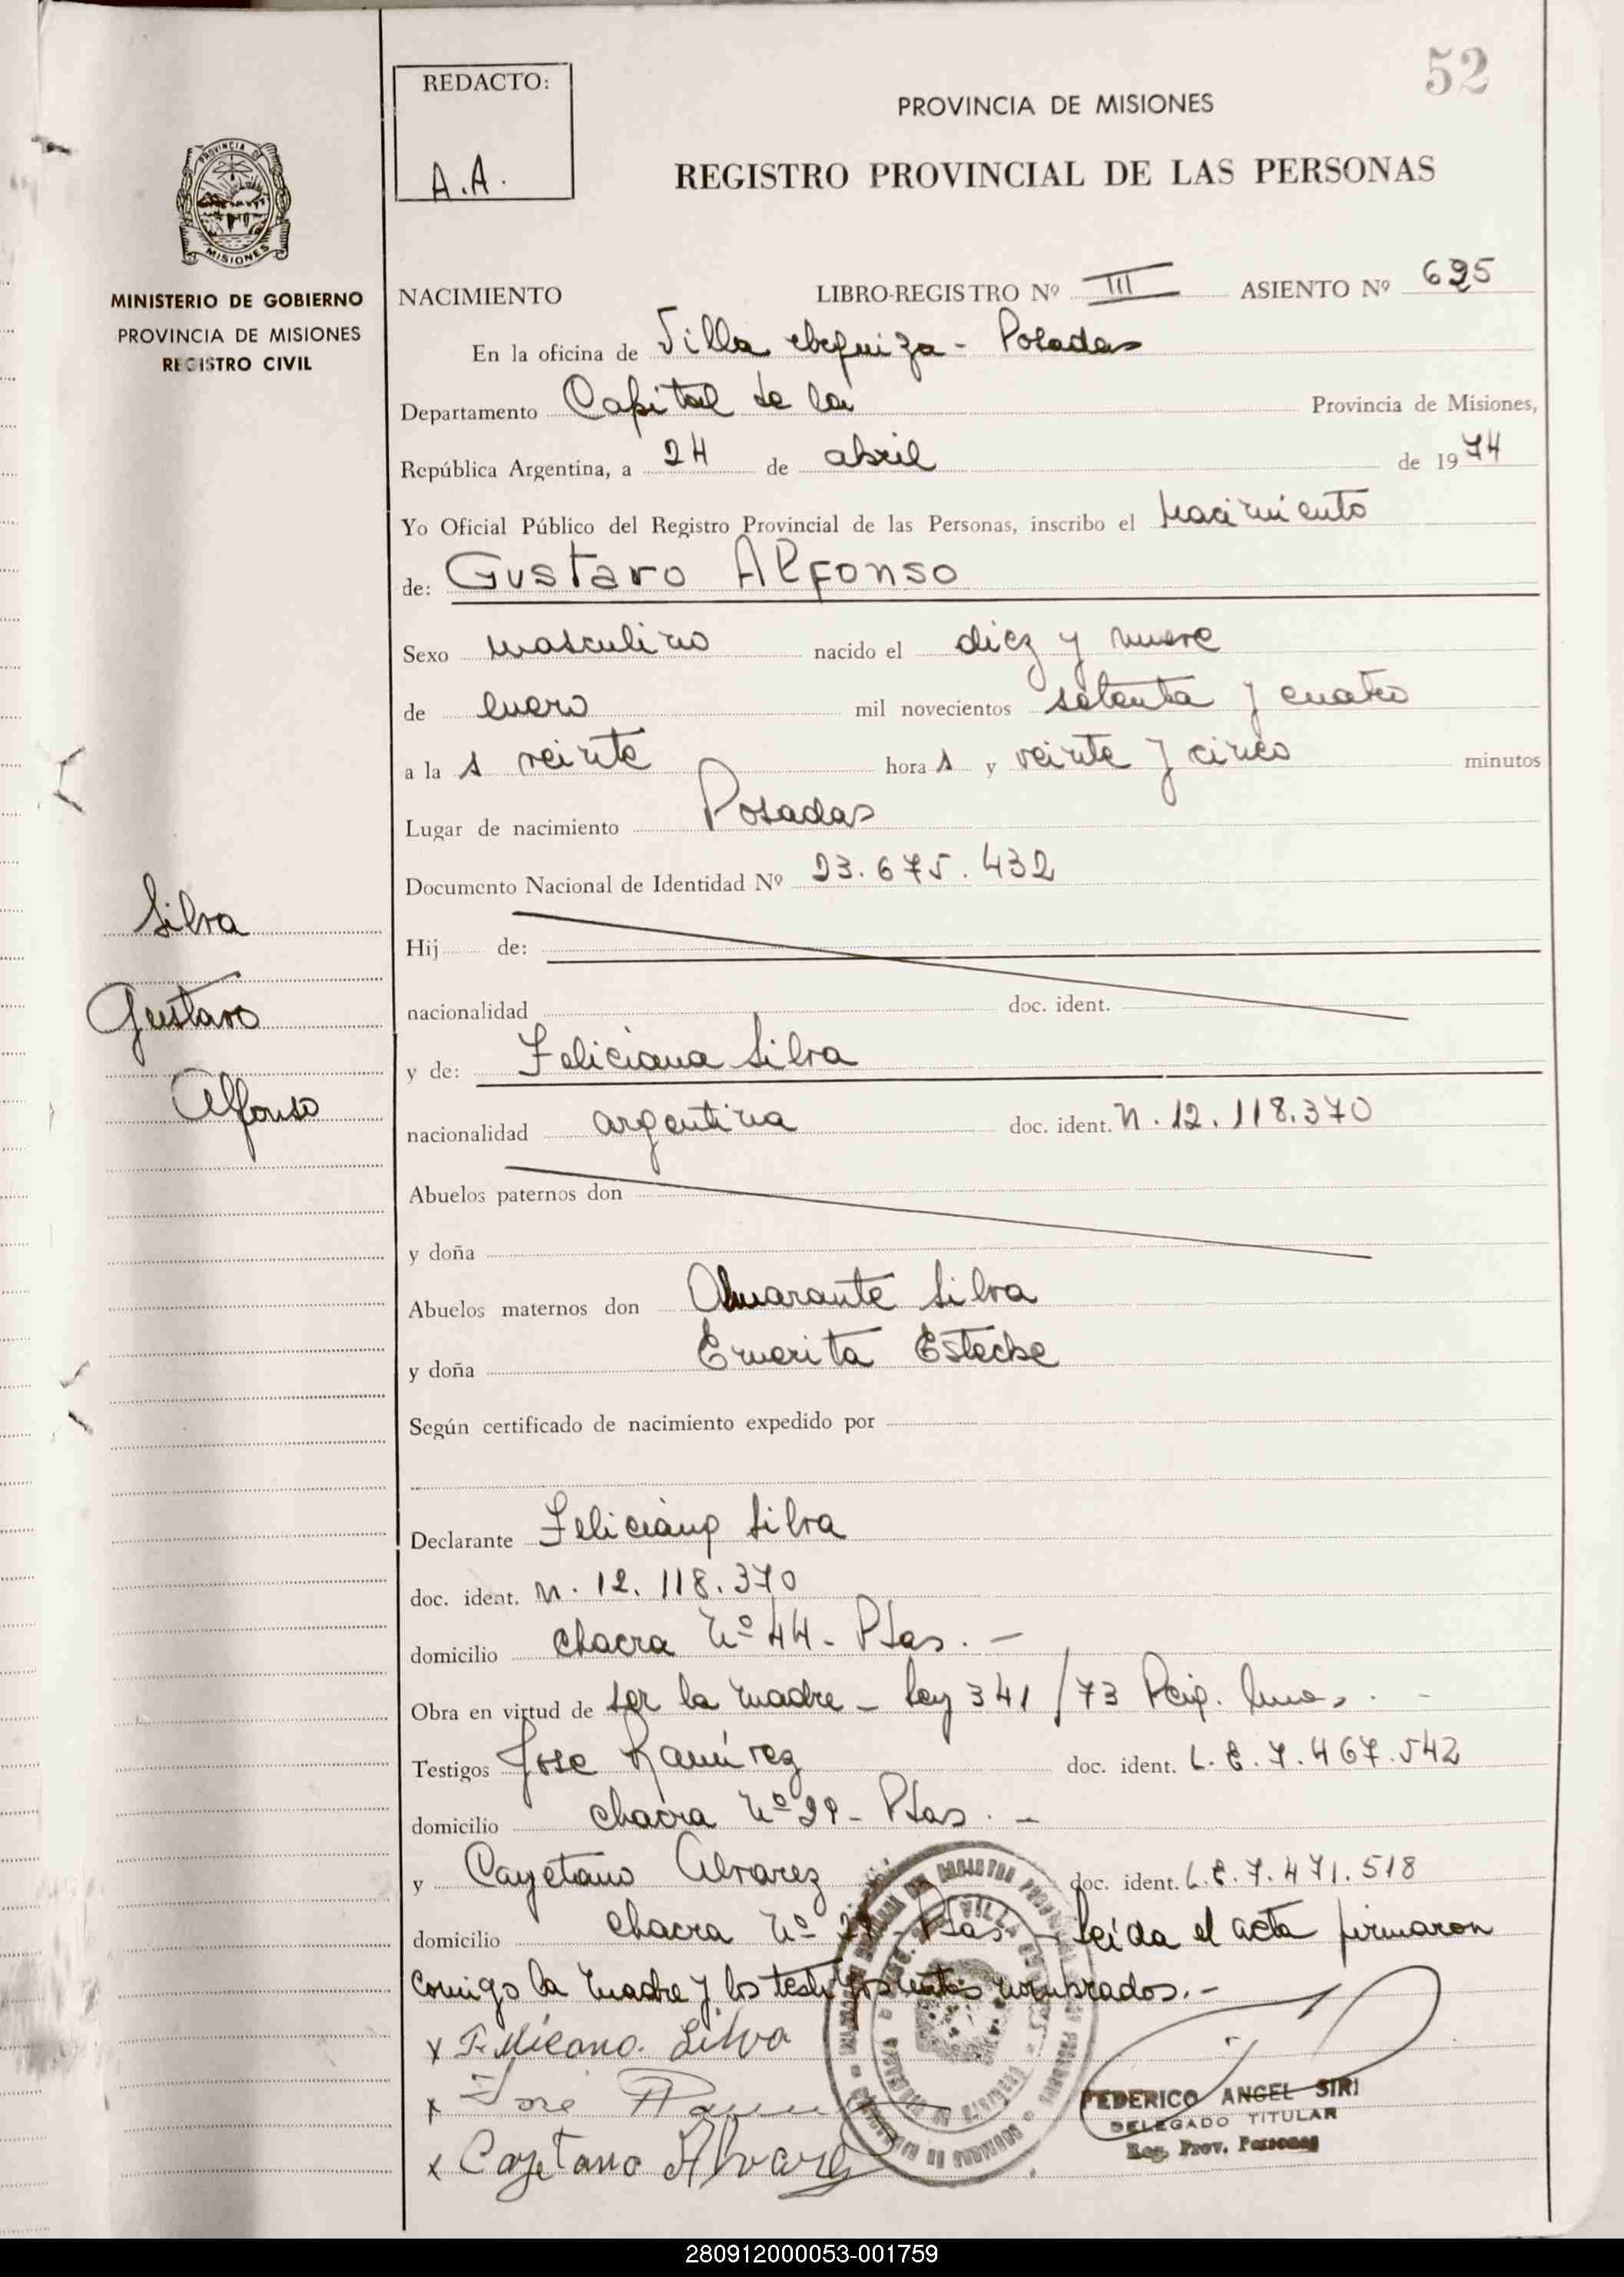 52
REDACTO:
A.A.
PROVINCIA DE MISIONES
REGISTRO PROVINCIAL DE LAS PERSONAS
PROVINCIA DE MISIONES
MINISTERIO DE GOBIERNO
PROVINCIA DE MISIONES
REGISTRO CIVIL
NACIMIENTO LIBRO-REGISTRO Nº III ASIENTO Nº 695
En la oficina de Villa - Posadas
Departamento Capital de la Provincia de Misiones,
República Argentina, a 24 de abril de 1974
Yo Oficial Público del Registro Provincial de las Personas, inscribo el Nacimiento
de: Gustavo Alfonso
Sexo masculino nacido el diez y nueve
de enero mil novecientos setenta y cuatro
a la s veinte hora s y veinte y cinco minutos
Lugar de nacimiento Posadas
Documento Nacional de Identidad Nº 23.675.432
Silva
Gustavo
Alfonso
Hij de:
nacionalidad doc. ident.
y de: Feliciana Silva
nacionalidad argentina doc. ident. N. 12.118.370
Abuelos paternos don
y doña
Abuelos maternos don Amarante Silva
y doña Emerita Esteche
Según certificado de nacimiento expedido por
Declarante Feliciana Silva
doc. ident. N. 12.118.370
domicilio chacra Nº 44- Pdas.-
Obra en virtud de ser la madre - Ley 341/73
Testigos Jose Ramírez doc. ident. L.E.7.467.542
domicilio chacra Nº 29- Pdas.-
y Cayetano Alvarez doc. ident. L.E.7.471.518
domicilio chacra Nº Pdas.- Leída el acta firmaron
comigo la madre y los testigos antes nombrados.-
x Feliciana Silva
x José
x Cayetano Alvarez
FEDERICO ANGEL SIRI
DELEGADO TITULAR
Reg. Prov. Personas
280912000053-001759